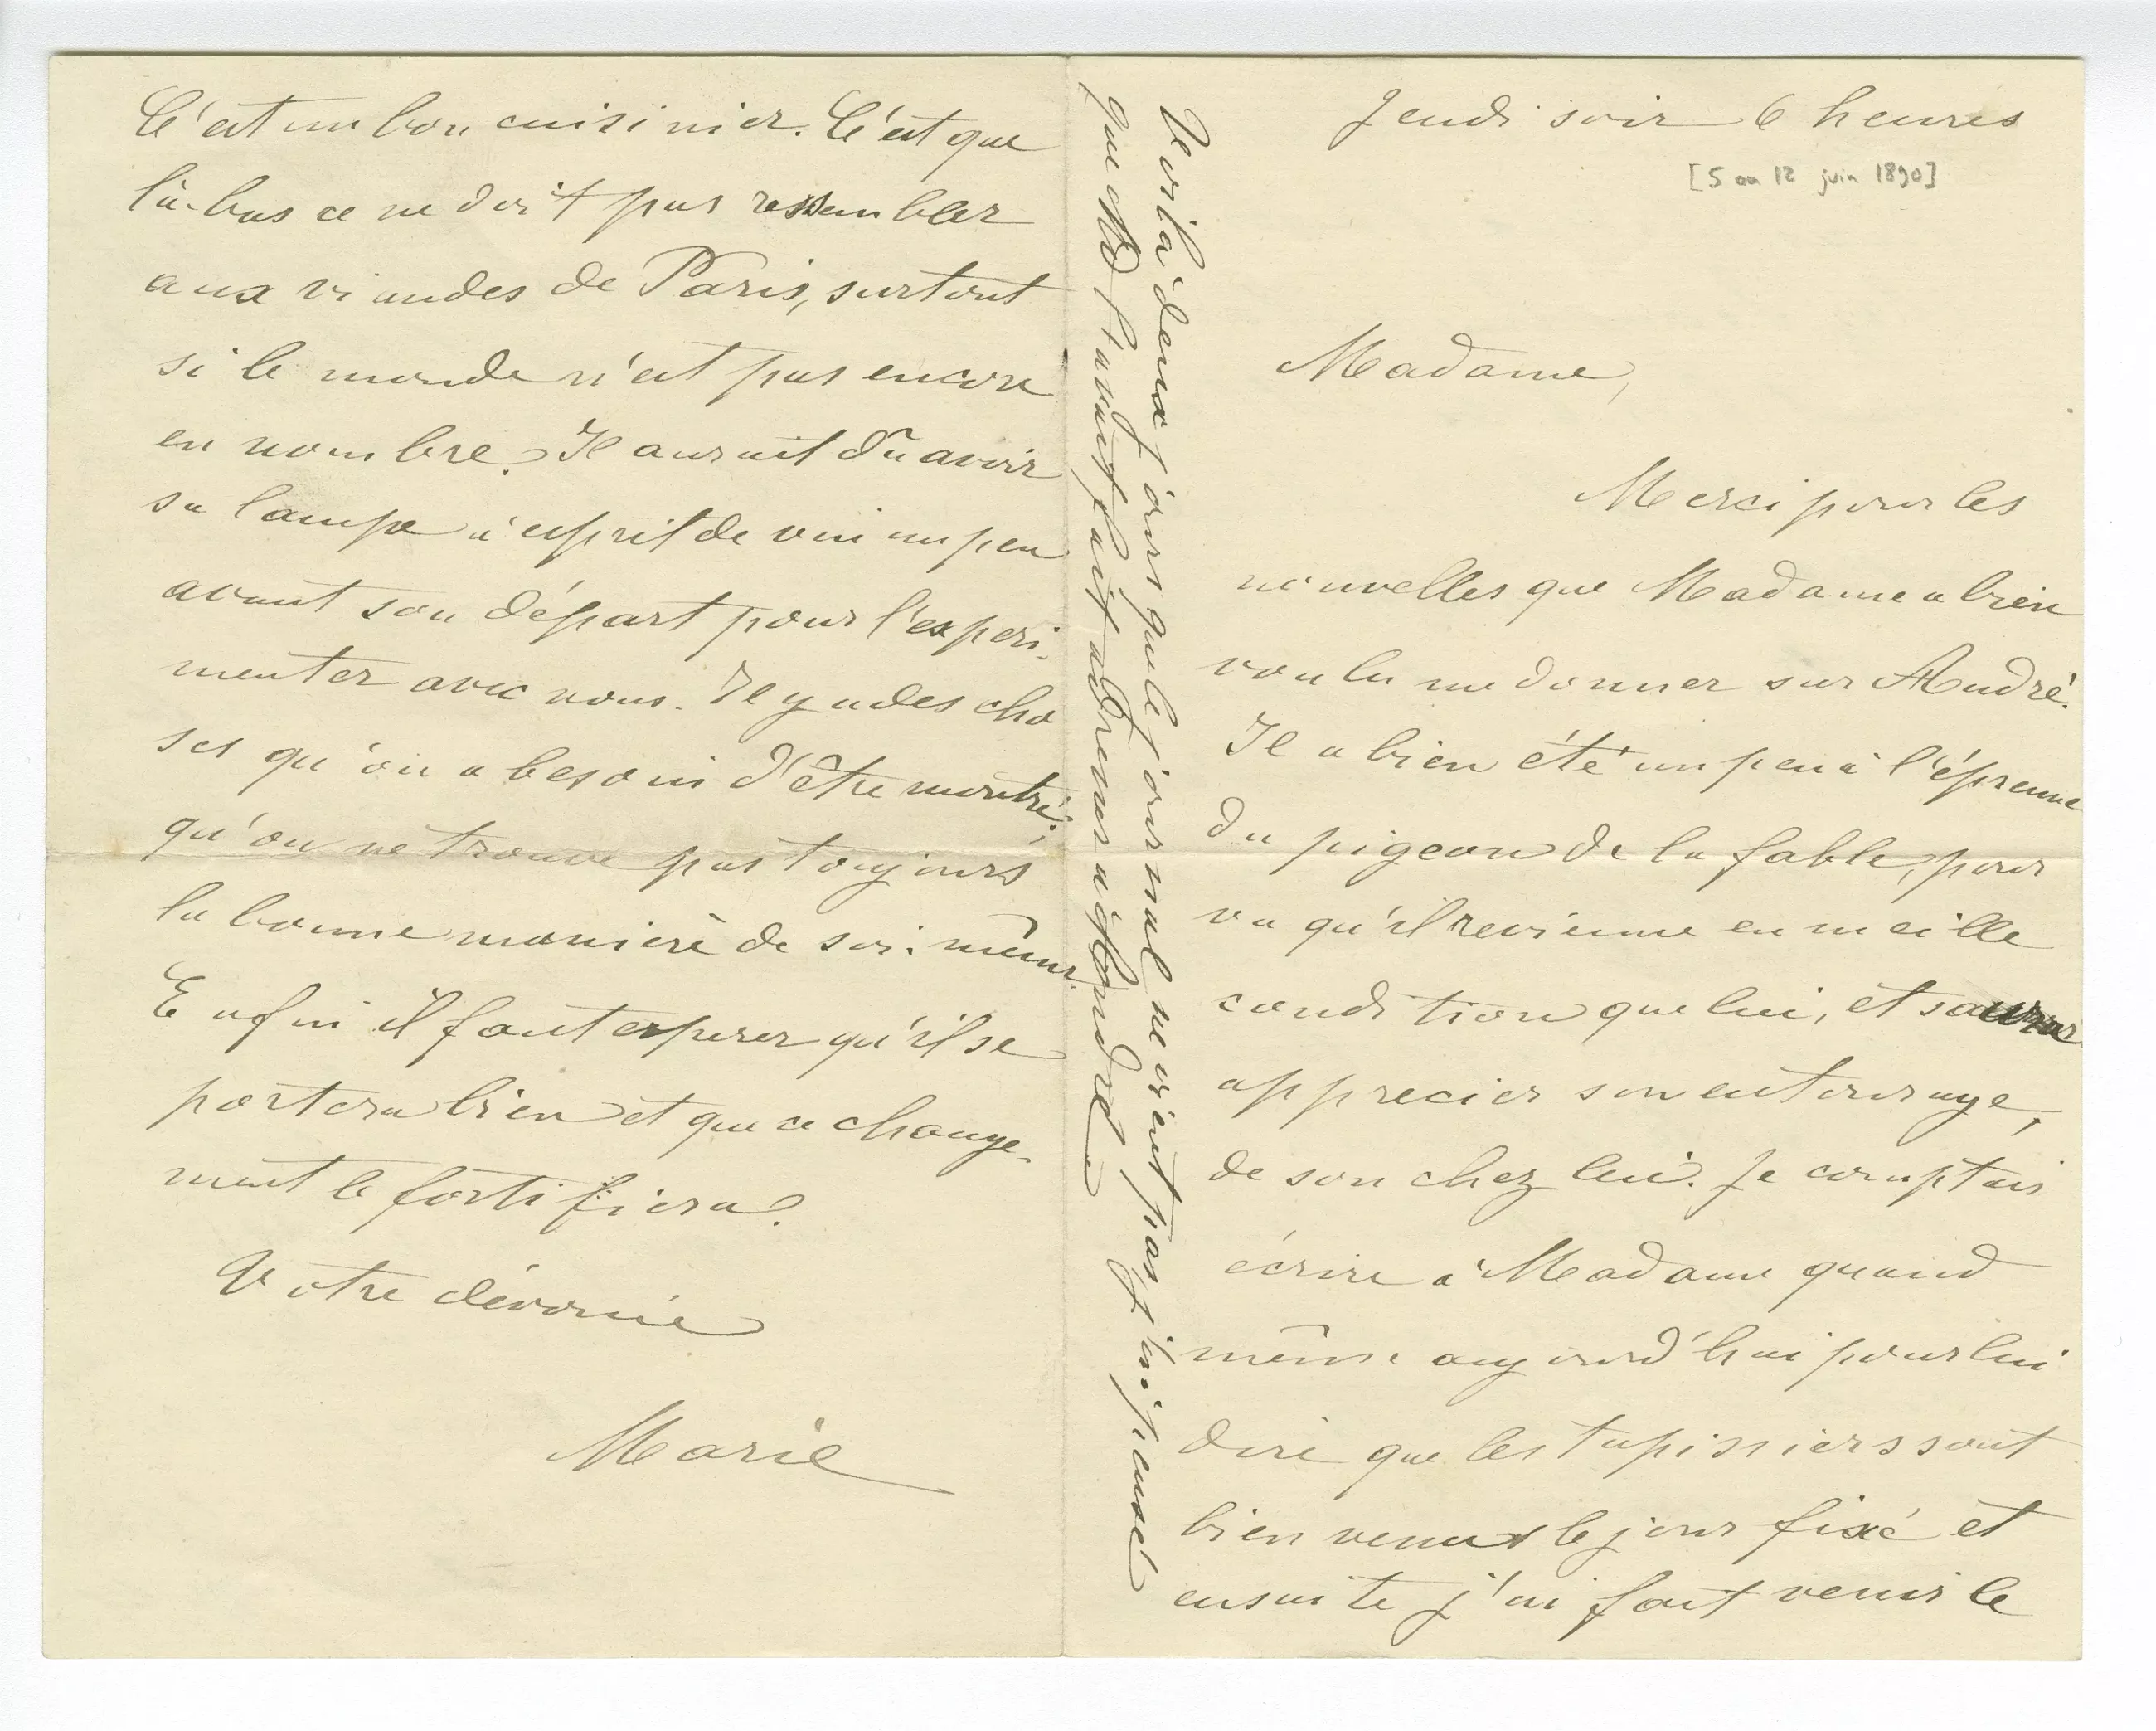 Jeudi soir 6 heures
[5 ou 12 juin 1890]
Madame,
Merci pour les
nouvelles que Madame a bien
voulu me donner sur André.
Il a bien été un peu à l'épreuve
du pigeon de la fable, pour
vu qu'il revienne en meille
condition que lui, et saura
apprecier son entourage,
de son chez lui. Je comptais
écrire à Madame quand
même aujourd'hui pour lui
dire que les tapissiers sont
bien venus le jour fixé et
ensuite j'ai fait venir le
Voila deux jours que le journal ne vient pas, j'ai pensé
que Md l'avait fait adresser à
C'est un bon cuisinier. C'est que
là-bas ce ne doit pas ressembler
aux viandes de Paris, surtout
si le monde n'est pas encore
en nombre. Il aurait dû avoir
sa lampe à esprit de vin un peu
avant son départ pour l'experi-
menter avec nous. Il y a des cho
ses qu'on a besoin d'être montré,
qu'on ne trouve pas toujours
la bonne manière de soi-même.
Enfin il faut esperer qu'il se
portera bien et que ce change-
ment le fortifiera.
Votre dévouée
Marie